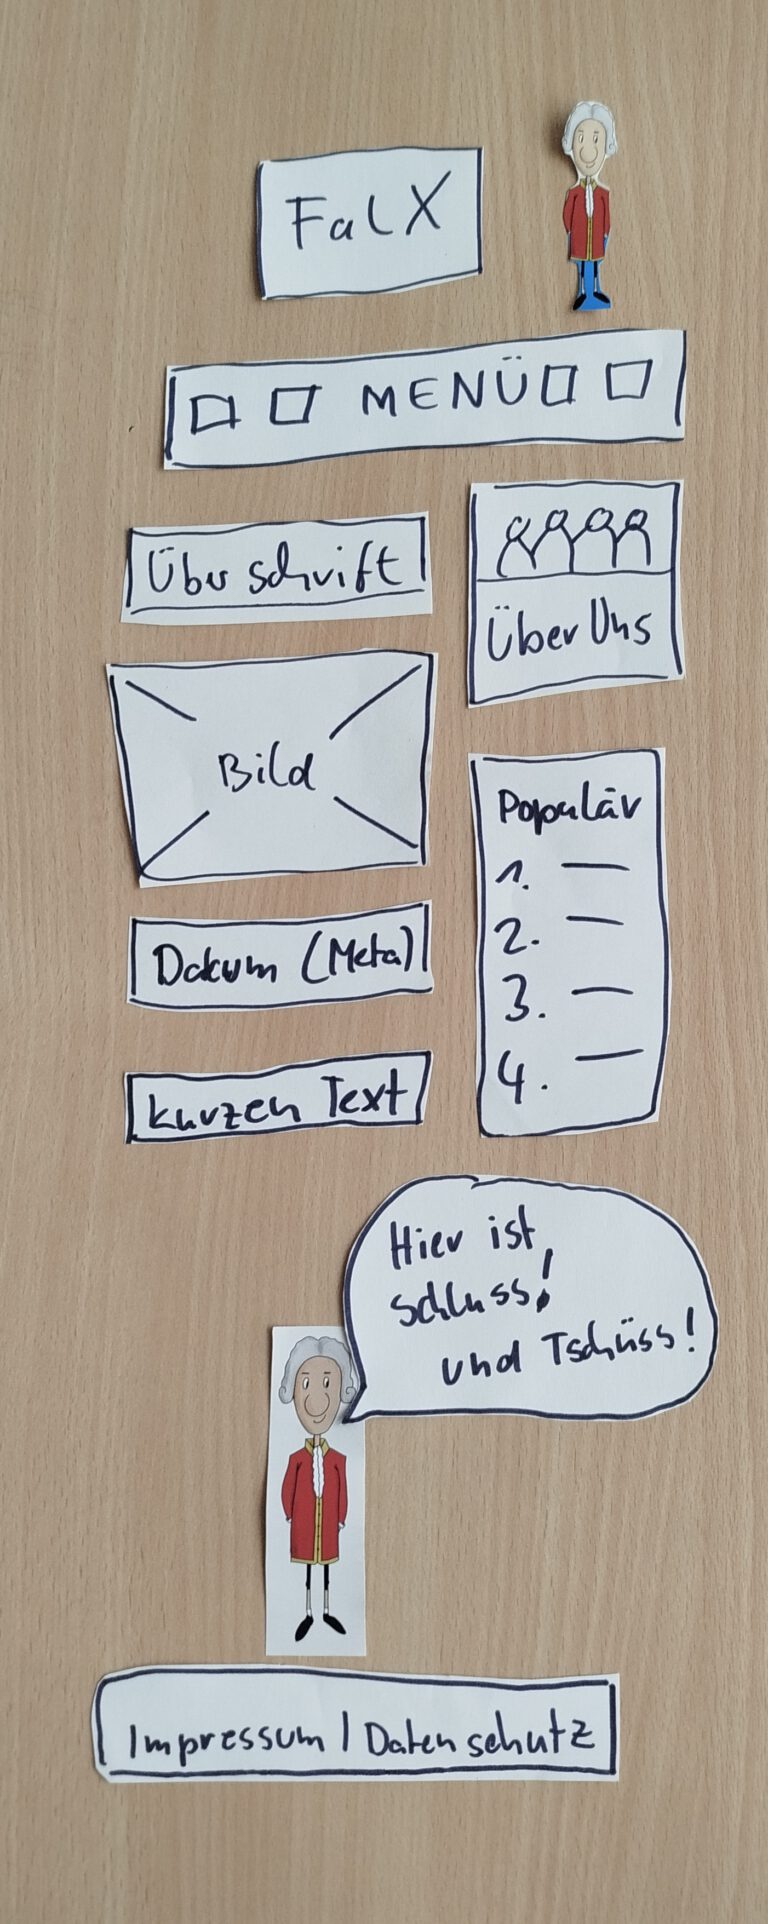 FalX
MENÜ
Überschrift
Bild
Datum (Meta)
kurzen Text
Über Uns
Populär
1.
2.
3.
4.
Hier ist
schluss!
und Tschüss!
Impressum | Datenschutz